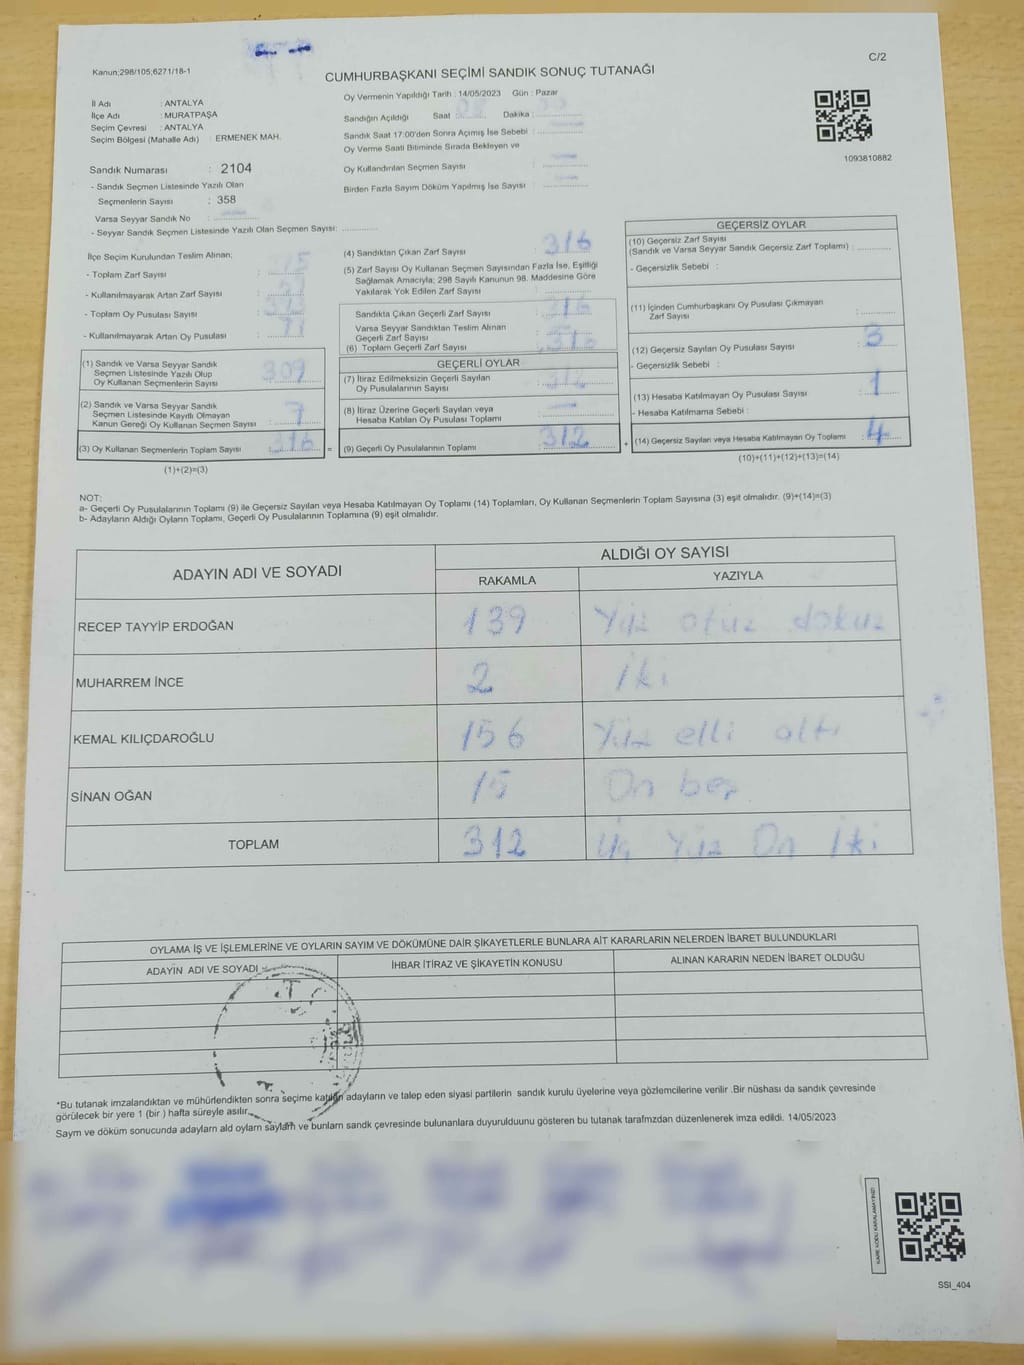 Kanun;298/105;6271/18-1
C/2
CUMHURBAŞKANI SEÇİMİ SANDIK SONUÇ TUTANAĞI
İl Adı : ANTALYA
İlçe Adı : MURATPAŞA
Seçim Çevresi : ANTALYA
Seçim Bölgesi (Mahalle Adı) : ERMENEK MAH.
Sandık Numarası : 2104
- Sandık Seçmen Listesinde Yazılı Olan
Seçmenlerin Sayısı : 358
Varsa Seyyar Sandık No :
- Seyyar Sandık Seçmen Listesinde Yazılı Olan Seçmen Sayısı:
Oy Vermenin Yapıldığı Tarih : 14/05/2023 Gün : Pazar
Sandığın Açıldığı Saat Dakika :
Sandık Saat 17:00'den Sonra Açımış İse Sebebi :
Oy Verme Saati Bitiminde Sırada Bekleyen ve
Oy Kullandırılan Seçmen Sayısı :
Birden Fazla Sayım Döküm Yapılmış İse Sayısı :
1093810882
İlçe Seçim Kurulundan Teslim Alınan;
- Toplam Zarf Sayısı :
- Kullanılmayarak Artan Zarf Sayısı :
- Toplam Oy Pusulası Sayısı :
- Kullanılmayarak Artan Oy Pusulası :
(1) Sandık ve Varsa Seyyar Sandık
Seçmen Listesinde Yazılı Olup
Oy Kullanan Seçmenlerin Sayısı : 309
(2) Sandık ve Varsa Seyyar Sandık
Seçmen Listesinde Kayıtlı Olmayan
Kanun Gereği Oy Kullanan Seçmen Sayısı : 7
(3) Oy Kullanan Seçmenlerin Toplam Sayısı : 316 =
(1)+(2)=(3)
(4) Sandıktan Çıkan Zarf Sayısı : 316
(5) Zarf Sayısı Oy Kullanan Seçmen Sayısından Fazla İse, Eşitliği
Sağlamak Amacıyla; 298 Sayılı Kanunun 98. Maddesine Göre
Yakılarak Yok Edilen Zarf Sayısı :
Sandıkta Çıkan Geçerli Zarf Sayısı : 316
Varsa Seyyar Sandıktan Teslim Alınan
Geçerli Zarf Sayısı :
(6) Toplam Geçerli Zarf Sayısı : 316
GEÇERLİ OYLAR
(7) İtiraz Edilmeksizin Geçerli Sayılan
Oy Pusulalarının Sayısı : 312
(8) İtiraz Üzerine Geçerli Sayılan veya
Hesaba Katılan Oy Pusulası Toplamı :
(9) Geçerli Oy Pusulalarının Toplamı : 312 +
GEÇERSİZ OYLAR
(10) Geçersiz Zarf Sayısı
(Sandık ve Varsa Seyyar Sandık Geçersiz Zarf Toplamı) :
- Geçersizlik Sebebi :
(11) İçinden Cumhurbaşkanı Oy Pusulası Çıkmayan
Zarf Sayısı :
(12) Geçersiz Sayılan Oy Pusulası Sayısı : 3
- Geçersizlik Sebebi :
(13) Hesaba Katılmayan Oy Pusulası Sayısı : 1
- Hesaba Katılmama Sebebi :
(14) Geçersiz Sayılan veya Hesaba Katılmayan Oy Toplamı : 4
(10)+(11)+(12)+(13)=(14)
NOT:
a- Geçerli Oy Pusulalarının Toplamı (9) ile Geçersiz Sayılan veya Hesaba Katılmayan Oy Toplamı (14) Toplamları, Oy Kullanan Seçmenlerin Toplam Sayısına (3) eşit olmalıdır. (9)+(14)=(3)
b- Adayların Aldığı Oyların Toplamı, Geçerli Oy Pusulalarının Toplamına (9) eşit olmalıdır.
ADAYIN ADI VE SOYADI
ALDIĞI OY SAYISI
RAKAMLA YAZIYLA
RECEP TAYYİP ERDOĞAN 139 Yüz otuz dokuz
MUHARREM İNCE 2 İki
KEMAL KILIÇDAROĞLU 156 Yüz elli altı
SİNAN OĞAN 15 On beş
TOPLAM 312 Üç Yüz On İki
OYLAMA İŞ VE İŞLEMLERİNE VE OYLARIN SAYIM VE DÖKÜMÜNE DAİR ŞİKAYETLERLE BUNLARA AİT KARARLARIN NELERDEN İBARET BULUNDUKLARI
ADAYIN ADI VE SOYADI İHBAR İTİRAZ VE ŞİKAYETİN KONUSU ALINAN KARARIN NEDEN İBARET OLDUĞU
T.C.
*Bu tutanak imzalandıktan ve mühürlendikten sonra seçime katılan adayların ve talep eden siyasi partilerin sandık kurulu üyelerine veya gözlemcilerine verilir .Bir nüshası da sandık çevresinde
görülecek bir yere 1 (bir ) hafta süreyle asılır.
Saym ve döküm sonucunda adaylarn ald oylarn saylarh ve bunlarn sandk çevresinde bulunanlara duyurulduunu gösteren bu tutanak tarafmzdan düzenlenerek imza edildi. 14/05/2023
KARE KODU KARALAMAYINIZ!
SSI_404